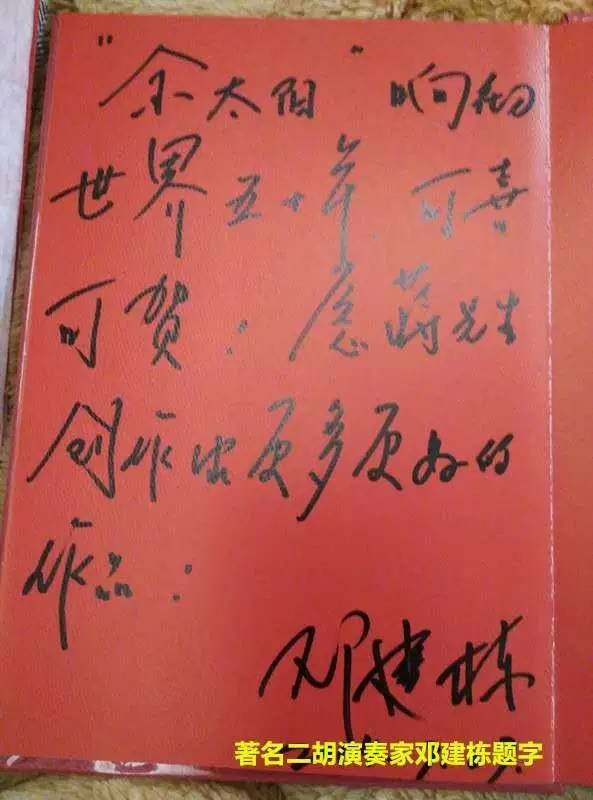 “金太阳”响彻
世界五十年，可喜
可贺！愿蒋先生
创作出更多更好的
作品！
邓建栋
著名二胡演奏家邓建栋题字